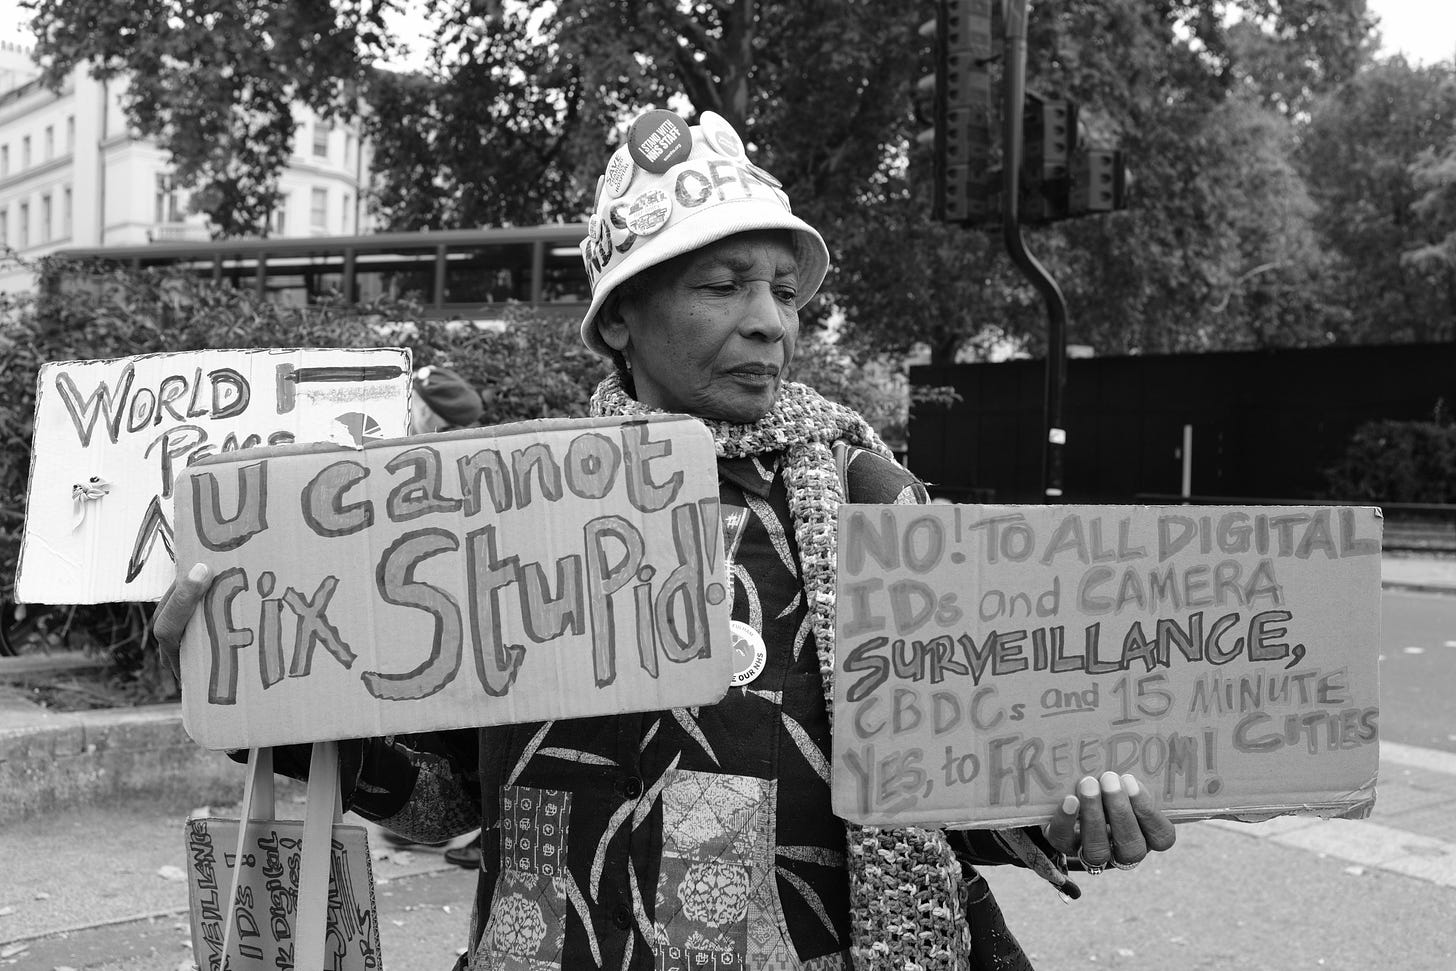 I STAND WITH
NHS STAFF
SAVE
OFF
WORLD
u cannot
fix Stupid!
NO! To ALL DIGITAL
IDs and CAMERA
SURVEILLANCE,
CBDCs and 15 MINUTE
CITIES
YES, to FREEDOM!
#
OUR NHS
IDS